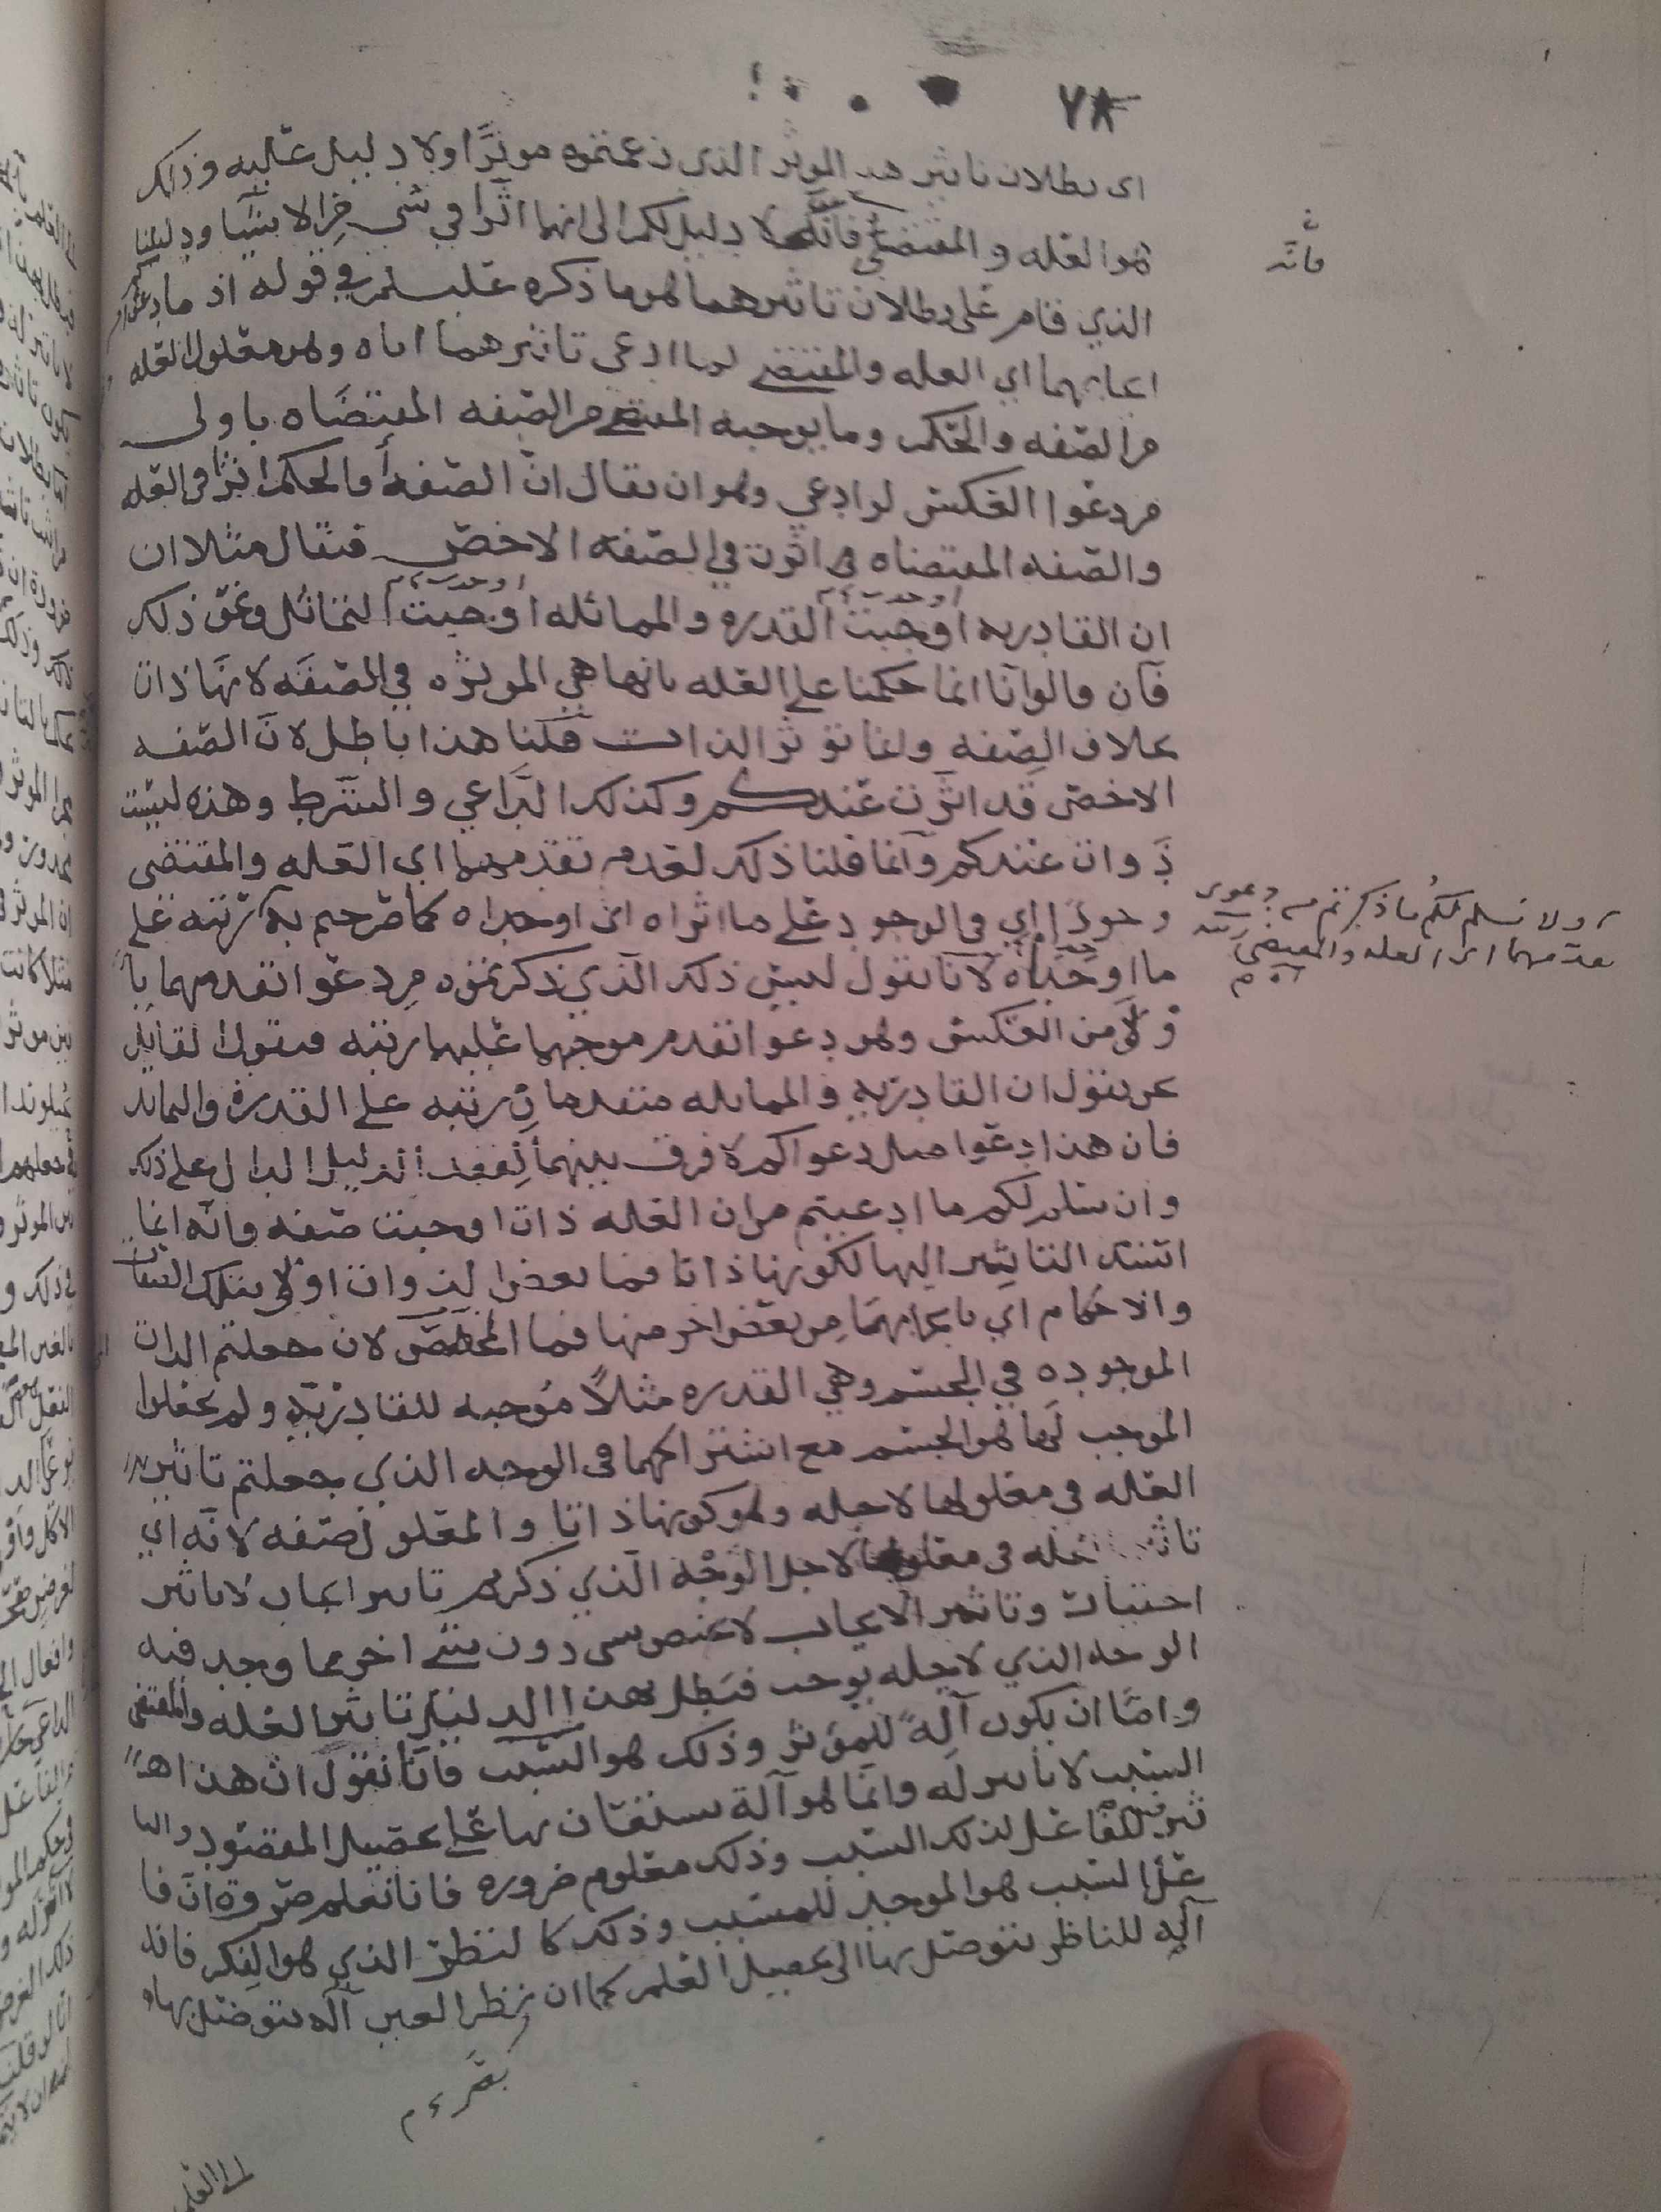 ٧٨
اى بطلان تاثير هذا الموثر الذى زعمتموه موثرًا ولا دليل عليه وذلك
هوا لعله والمقتضي فانه لا دليل لكم الى انهما اثرا في شي مرالاشيا ودليلنا
فانه
الذي قام على بطلان تاثيرهما هوما ذكره علیسلم في قوله اذ ما دعوا
ايجابهما اي العله والمقتضى لما ادعى تاثيرهما اياه وهو معلول العله
مرالصفه والحكم وما يوجبه المقتضى مرالصفه المقتضاه باولى
مردعوا العكس لو ادعي وهو ان يقال ان الصفه أوالحكم اثرا فى العله
والصفه المقتضاه هي اثرت في الصفه الاخص فيقال مثلا ان
ان القادريه اوجبت القدره والمماثله اوجبت التماثل ونحو ذلك
فان قالوا انا انما حكمنا على العله بانها هي الموثره في الصفه لانها ذات
بخلاف الصفه وانما توثر الذات قلنا هذا باطل لان الصفه
الاخص قد اثرت عندكم وكذلك الداعي والشرط وهذه ليست
ذوات عندكم وانما قلنا ذلك لعدم تقدمهما اي العله والمقتضى
وجودًا اي في الوجود على ما اثراه اى اوجباه كما صرحتم به ترتبه على
ولا نسلم لكم ما ذكرتم من دعوى
تقدمهما اى العله والمقتضى رتبه
ما اوجباه لانا نقول ليس ذلك الذي ذكرتموه مردعوا تقدمهما با
ولى من العكس وهو دعوا تقدم موجبهما عليهما رتبه فيقول لقائل
نحن نقول ان القادريه والمماثله متقدمان رتبه على القدره والتماثل
فان هذا دعوا مثل دعواكم لا فرق بينهما لفقد الدليل الدال على ذلك
وان سلم لكم ما ادعيتم مران العله ذات اوجبت صفه وانه انما
استند التاثير اليها لكونها ذاتا فما بعض الذوات اولى بتلك الصفات
والاحكام اي بايجابهما مربعض اخر منها فما المخصص لان جعلتم الذات
الموجوده في الجسم وهي القدره مثلاً مُوجبه للقادريه ولم تجعلوا
الموجب لها هو الجسم مع اشتراكهما فى الوجه الذي جعلتم تاثير
العله فى معلولها لاجله وهو كونها ذاتا والمعلول صفه لانه اي
تاثير العله فى معلولها لاجل الوجه الذي ذكرتم تاثير ايجاب لا تاثير
اختيار وتاثير الايجاب لا يختص بشى دون شئ اخر مما وجد فيه
الوجه الذي لاجله يوجب فبطل بهذا الدليل تاثير العله والمقتضى
وامّا ان يكون آلةً للمؤثر وذلك هو السبب فانا نقول ان هذا اهـ
السبب لا تاثير له وانما هو آلة يستعان بها على تحصيل المقصود والتا
ثير للفاعل لذلك السبب وذلك معلوم ضروره فانا نعلم ضرورة ان فا
عل السبب هو الموجد للمسبب وذلك كالنظر الذي هو الفكر فانه
آله للناظر يتوصل بها الى تحصيل العلم كما ان نظر العين آله يتوصل بها